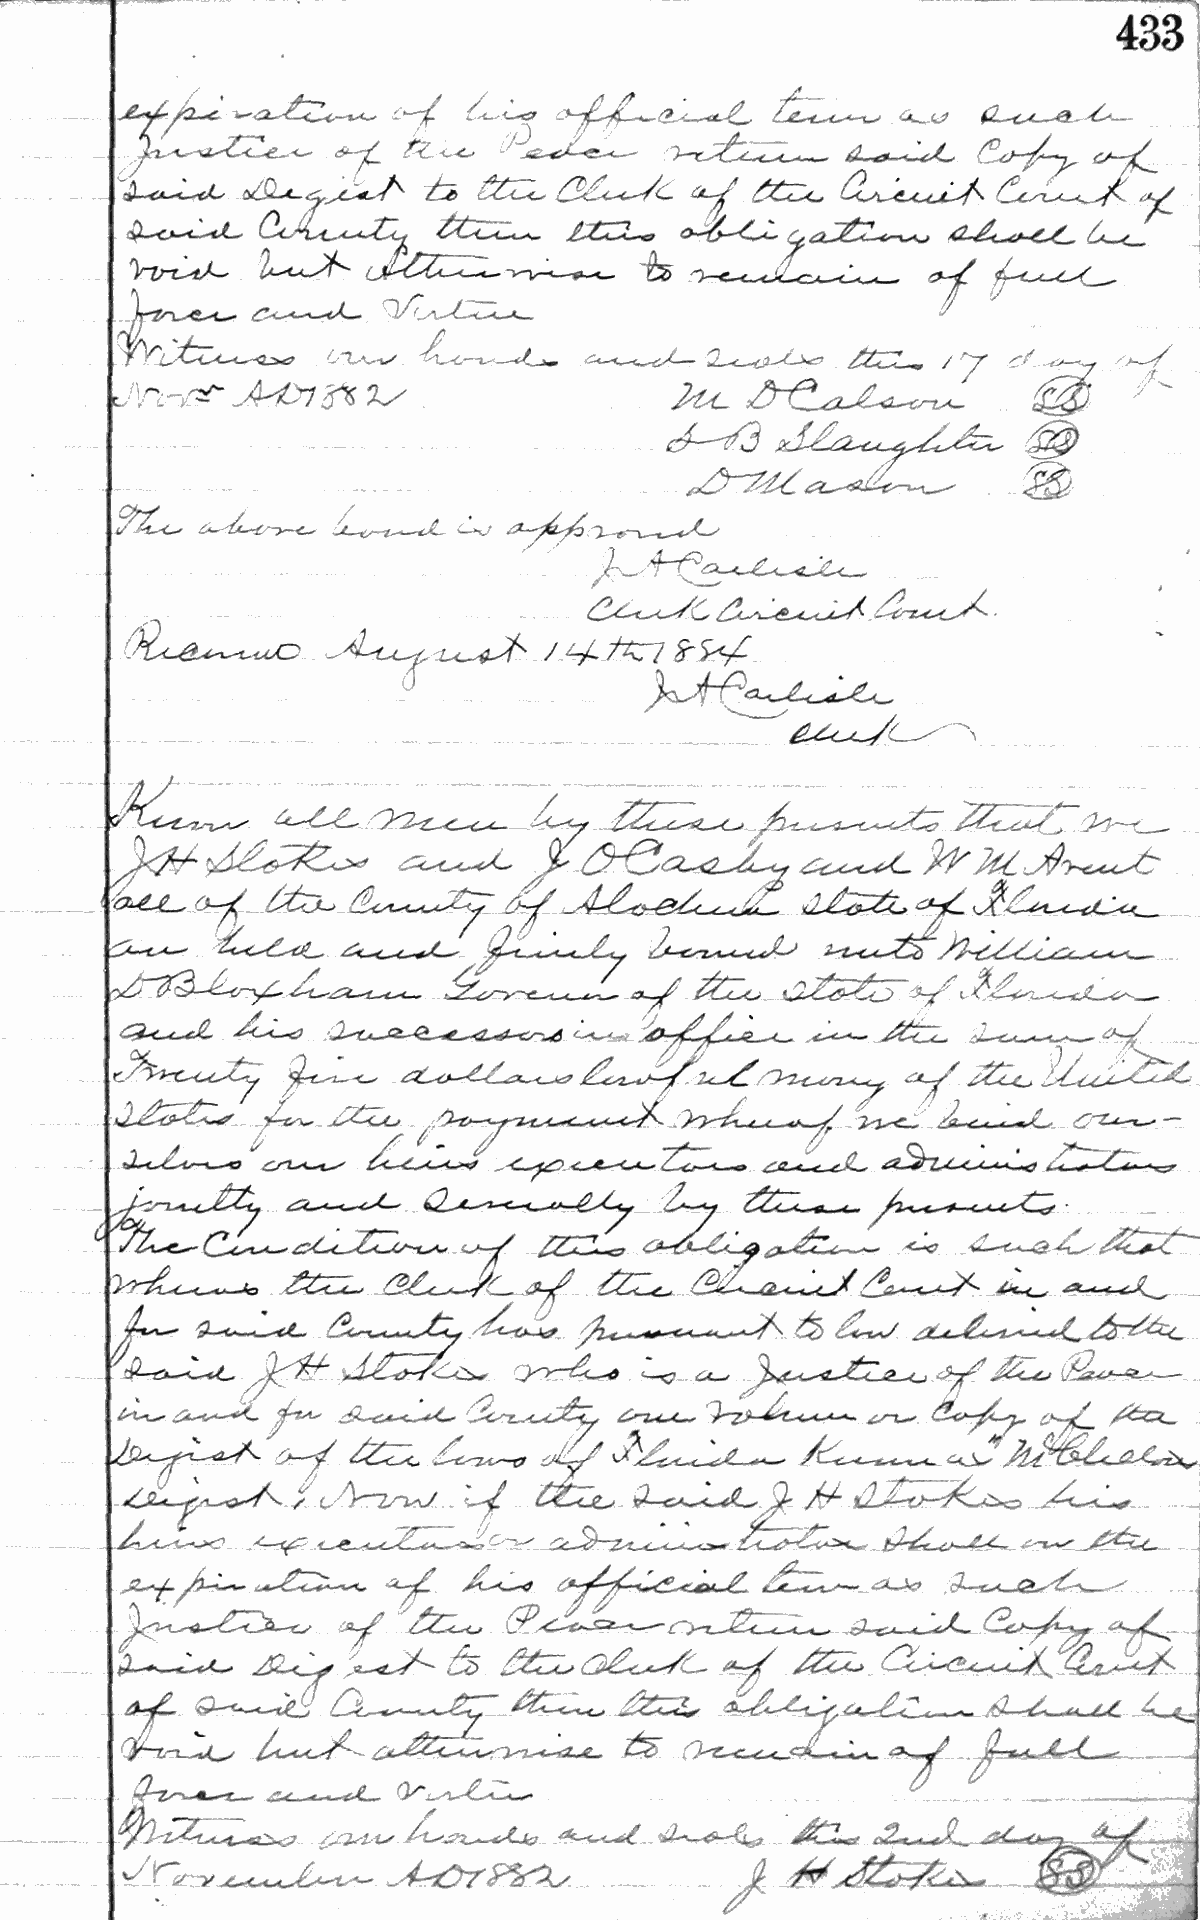 433
expiration of his official term as such
Justice of the Peace return said Copy of
said Digest to the Clerk of the Circuit Court of
said County then this obligation shall be
void but otherwise to remain of full
force and Virtue
Witness our hands and seals this 17 day of
Novr AD 1882 M D Calson SS
S B Slaughter SS
D Mason SS
The above bond is approved
J A Carlisle
Clerk Circuit Court.
Record August 14th 1884
J A Carlisle
Clerk
Know all men by these presents that we
J H Stokes and J O Casby and W M Avent
all of the County of Alachua State of Florida
are held and firmly bound unto William
D Bloxham Govenor of the State of Florida
and his successors in office in the sum of
Twenty five dollars lawful money of the United
States for the payment whereof we bind our-
selves our heirs executors and administrators
jointly and severally by these presents.
The Condition of this obligation is such that
whereas the Clerk of the Circuit Court in and
for said County has pursuant to law delivered to the
said J H Stokes who is a Justice of the Peace
in and for said County one volume or Copy of the
Digest of the laws of Florida Known as "McClellan
Digest, Now if the said J H Stokes his
heirs executors or administrators shall on the
expiration of his official term as such
Justice of the Peace return said Copy of
said Digest to the Clerk of the Circuit Court
of said County then this obligation shall be
void but otherwise to remain of full
force and virtue
Witness our hands and seals this 2nd day of
November AD 1882 J H Stokes SS